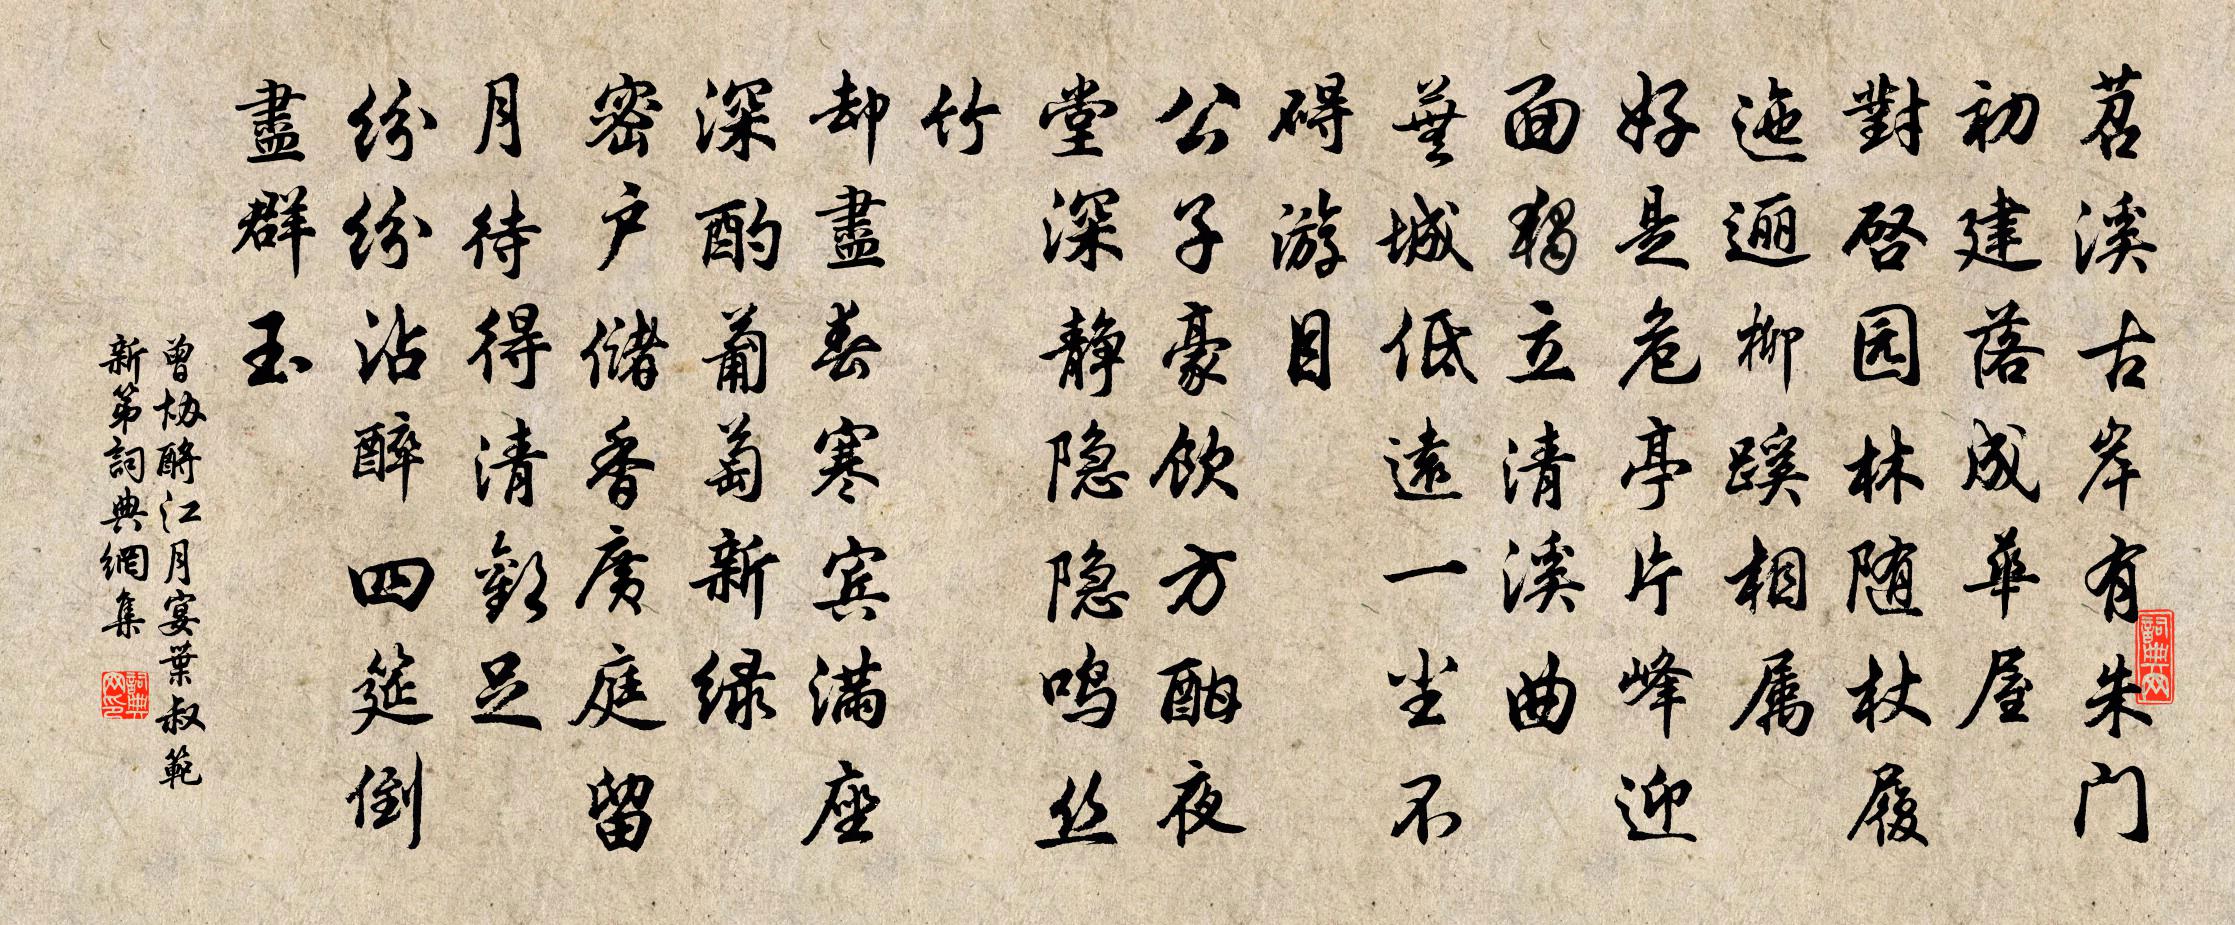 苕溪古岸有朱门
初建落成華屋
對啓园林随杖履
迤逦柳蹊相属
好是危亭片峰迎
面獨立清溪曲
蕪城低遠一尘不
碍游目
公子豪飲方酣夜
堂深静隐隐鸣丝
竹
却盡春寒宾满座
深酌葡萄新绿
密户储香廣庭留
月待得清歡足
纷纷沾醉四筵倒
盡群玉
曾协酹江月宴葉叔範
新第詞典網集
詞典网
詞典网印